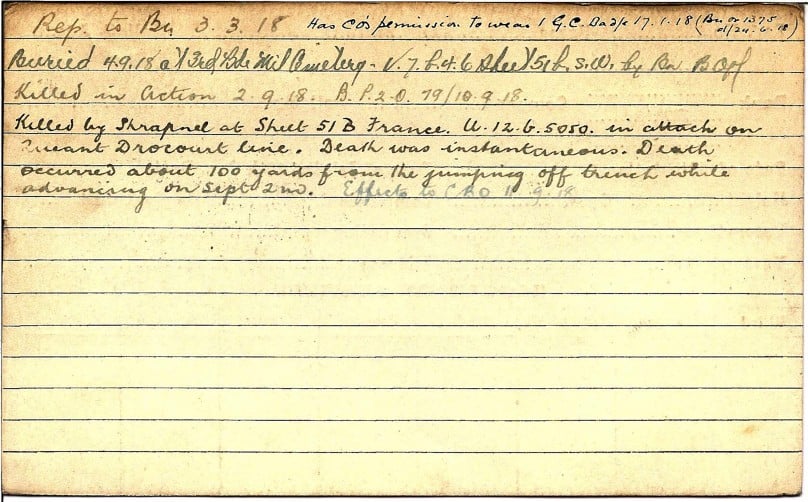 Rep. to Bn 3.3.18 Has CO's permission to wear 1 G.C. Badge 17.1.18 (Bn or 1375
d/24.6.18)
Buried 4.9.18 at 3rd Bde Mil Cemetery - V.7.b.4.6 Sheet 51b. S.W. by Bn
Killed in Action 2.9.18. B.P.2.O. 79/10.9.18.
Killed by Shrapnel at Sheet 51 B France. U.12.b.5050. in attack on
Queant Drocourt line. Death was instantaneous. Death
occurred about 100 yards from the jumping off trench while
advancing on Sept 2nd. Effects to 9.18